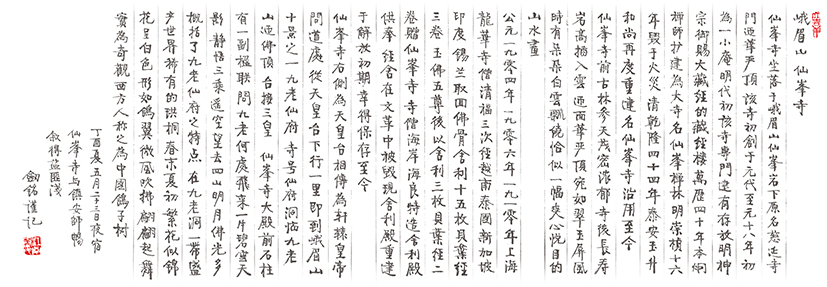 峨眉山仙峰寺
仙峯寺坐落于峨眉山仙峯岩下原名慈延寺
門迎華严顶該寺初創于元代至元十八年初
為一小庵明代初該寺專門建有存放明神
宗御賜大藏經的藏經樓萬歷四十年本炯
禪師扩建為大寺名仙峯禪林明崇禎十六
年毁于火災清乾隆四十四年泰安玉升
和尚再度重建名仙峯寺沿用至今
仙峯寺前古林参天茂密浓郁寺後長寿
岩高插入雲迎面華严顶宛如翠玉屏風
時有朵朵白雲飄绕恰似一幅爽心悦目的
山水畫
公元一九零四年一九零六年一九一零年上海
龍華寺僧清福三次往越南泰國新加坡
印度锡兰取回佛骨舍利十五枚貝葉經
三卷玉佛五尊後以舍利三枚貝葉經二
卷贈仙峯寺寺僧海岸海良特造舍利殿
供奉經舍在文革中被毁現舍利殿重建
于解放初期幸得保存至今
仙峯寺右側為天皇台相傳為軒轅皇帝
問道處從天皇台下行一里即到峨眉山
十景之一九老仙府寺号仙府洞临九老
山迎佛顶台接三皇 仙峯寺大殿前石柱
有一副楹联問九老何處飛來一片碧雲天
影静悟三乘遥空望去四山明月佛光多
概括了九老仙府之特点在九老洞一带盛
产世界稀有的珙桐春末夏初繁花似錦
花呈白色形如鴿翼微風吹拂翩翩起舞
實為奇觀西方人称之為中國鴿子树
丁酉夏五月二十三日夜宿
仙峰寺与安師暢
叙得益匪淺
劍銘謹記